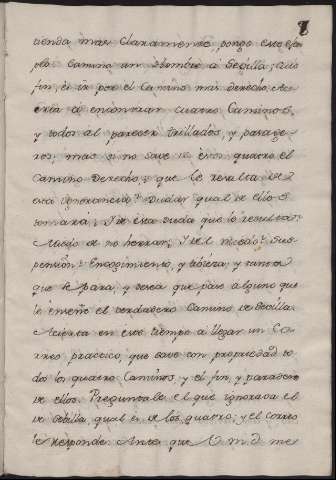 8
tienda mas claramente, pongo este exem
plo. Camina un Hombre a Sevilla; cuio
fin, es ir por el Camino mas derecho, Aci
erta a encontrar cuatro Caminos,
y todos al parecer trillados, y pasage
ros; mas si no save de esos quatro el
Camino derecho, que le resulta de
esa ignorancia? Dudar qual de ellos
tomará; I de esta duda que le resulta?
Miedo de no herrarlo; I del miedo? Sus
pension: Encogimiento, y tibieza, y tanta
que le para; y desea que pase alguno que
le enseñe el verdadero Camino de Sevilla.
Acierta en este tiempo a llegar un Co
rreo practico, que save con propiedad to
dos los quatro Caminos, y el fin, y paradero
de ellos. Preguntale el que ignorava el
de Sevilla, qual es de los quatro; y el correo
le responde. Antes que V. md. me